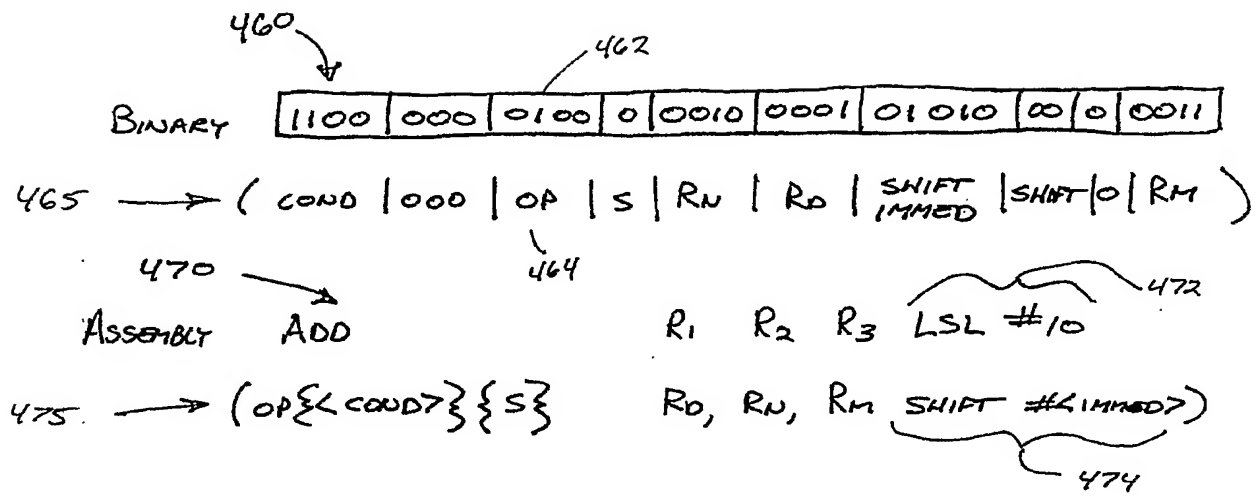 460
462
BINARY 1100 000 0100 0 0010 0001 01010 00 0 0011
465 → ( COND | 000 | OP | S | RN | RD | SHIFT IMMED | SHIFT | 0 | RM )
470 464
472
ASSEMBLY ADD R1 R2 R3 LSL #10
475. → (OP{<COND>}{S} RD, RN, RM SHIFT #<IMMED>)
474